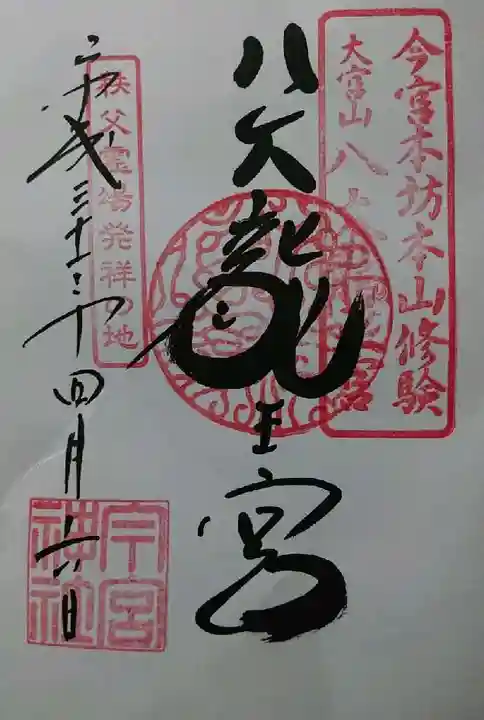 今宮本坊本山修験
大宮山八大龍王宮
八大龍王宮
秩父霊場発祥の地
平成三十一年四月六日
今宮神社